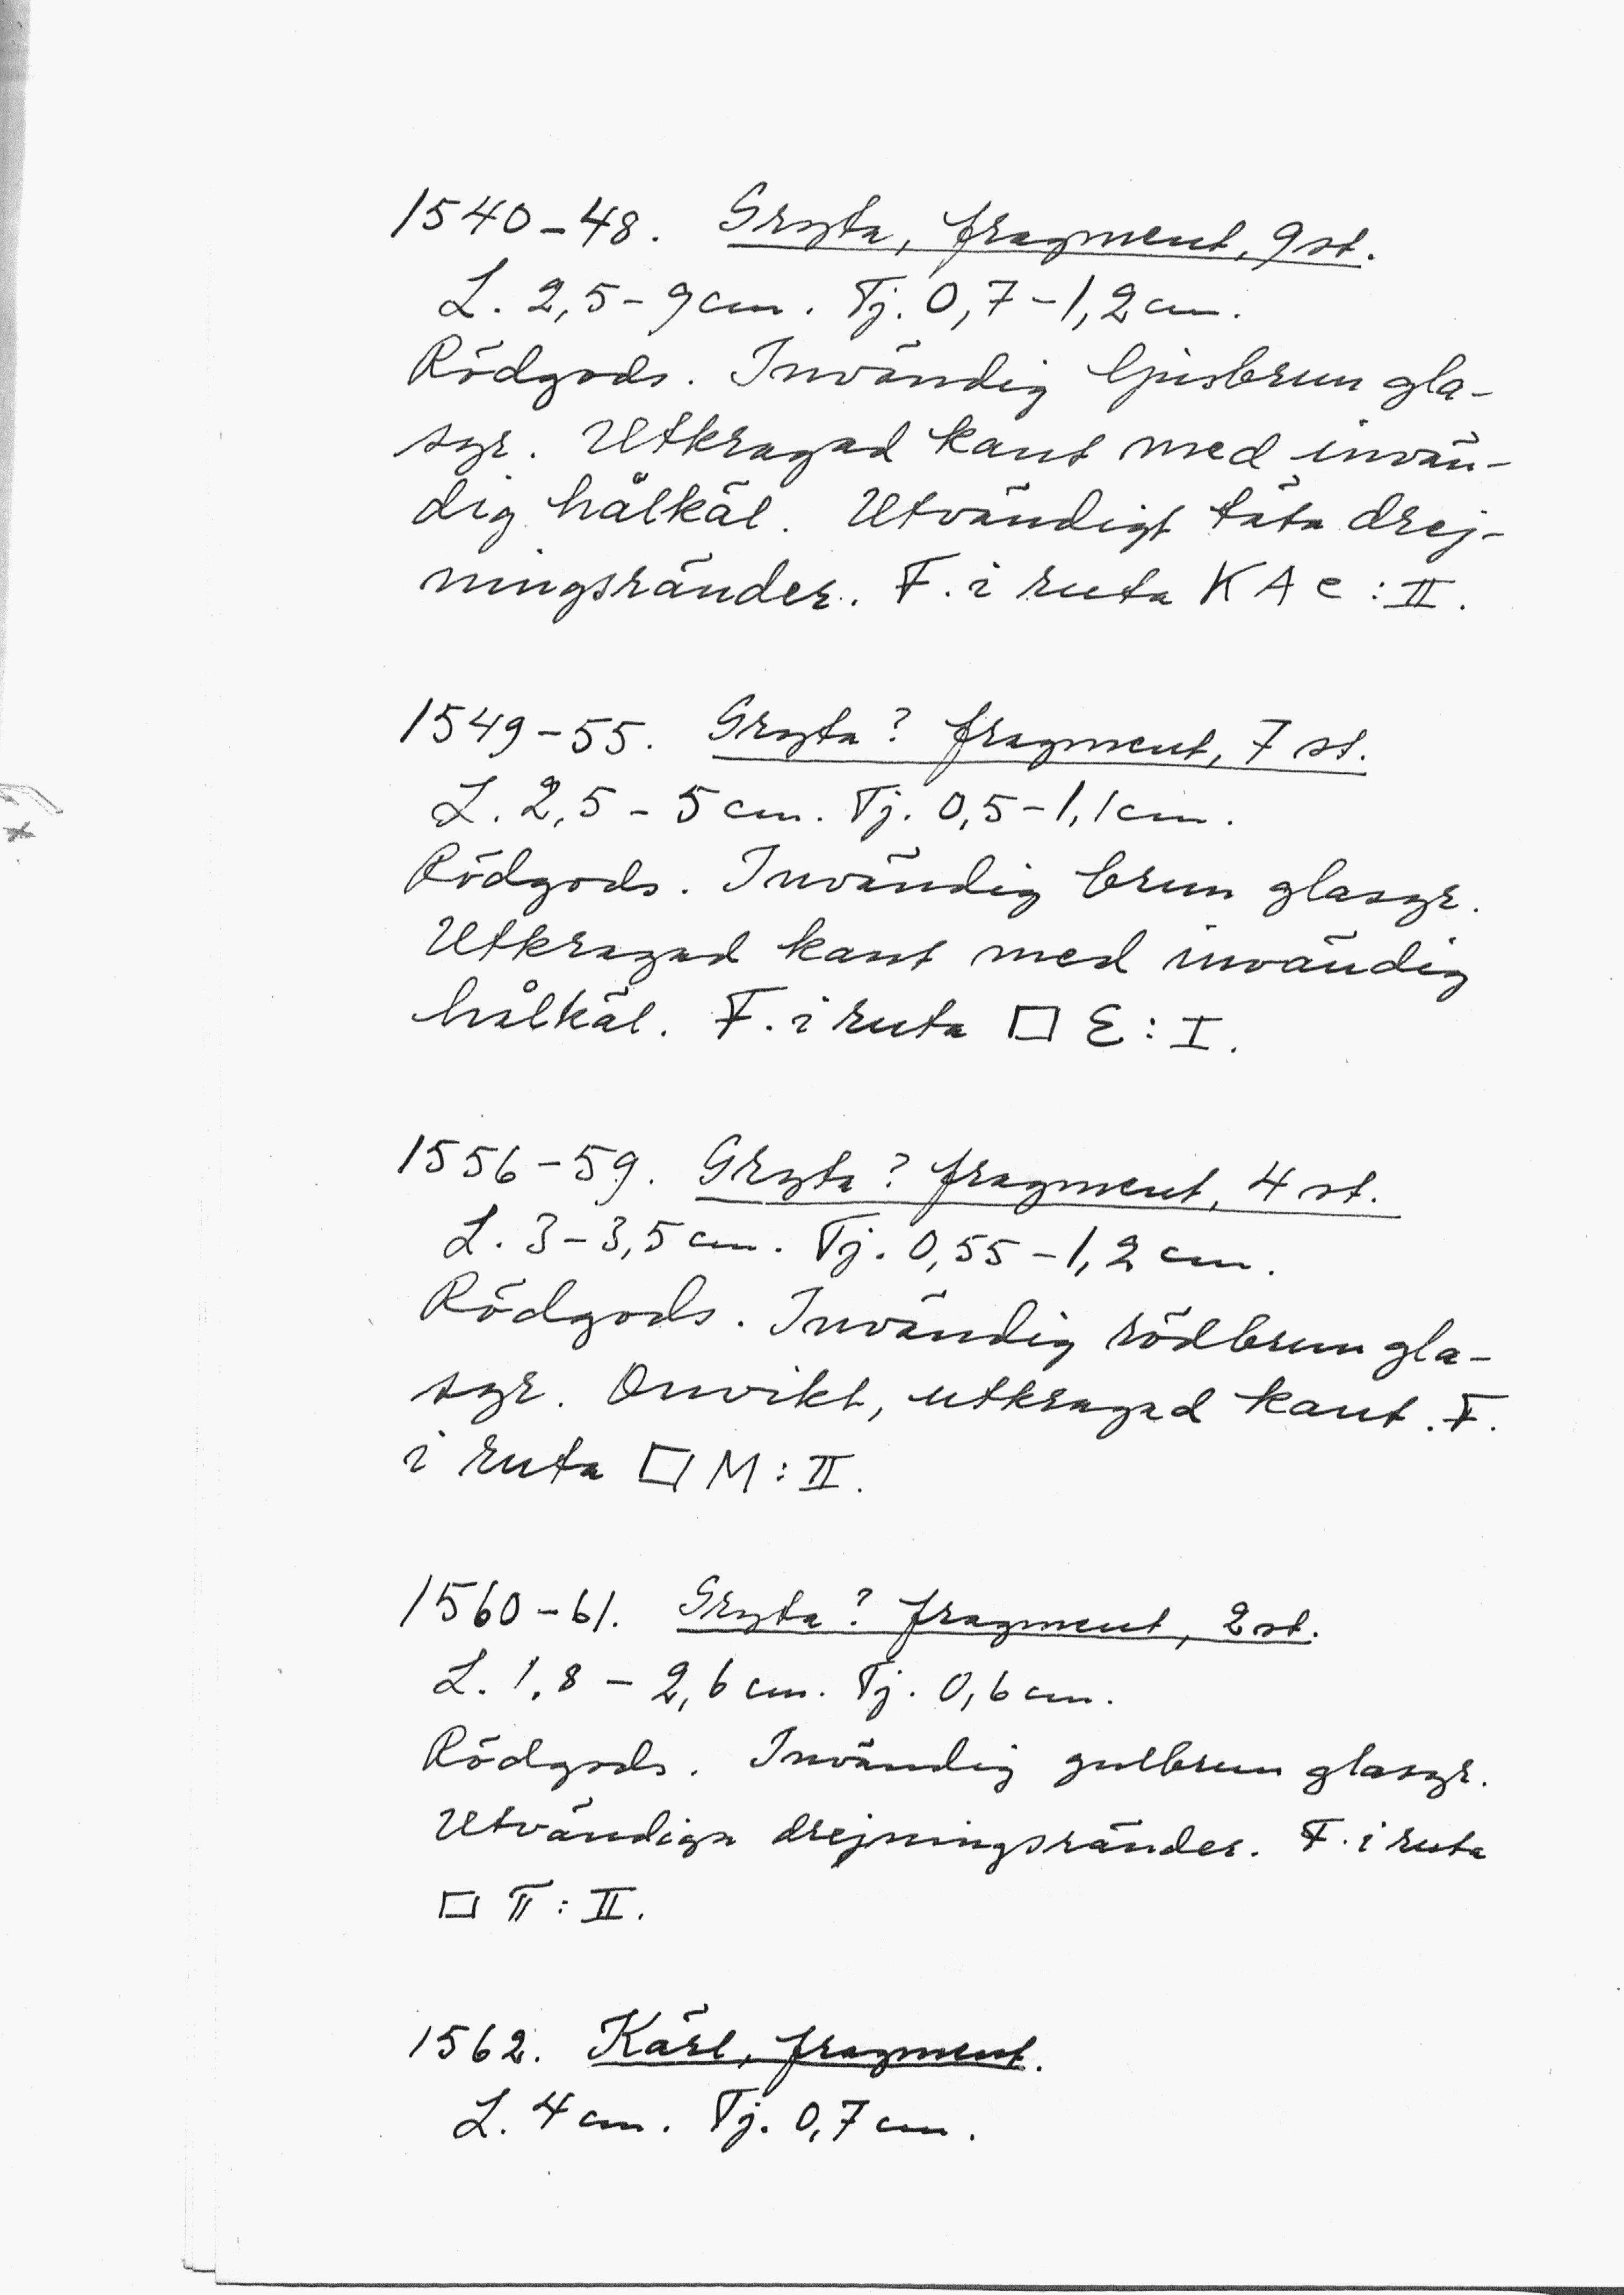 1540-48. Gryta, fragment, 9 st.
L. 2,5-9 cm. Tj. 0,7-1,2 cm.
Rödgods. Invändig ljusbrun gla-
syr. Utkragad kant med invän-
dig hålkäl. Utvändigt täta drej-
ningsränder. F. i ruta KAC:II.
1549-55. Gryta? fragment, 7 st.
L. 2,5-5 cm. Tj. 0,5-1,1 cm.
Rödgods. Invändig brun glasyr.
Utkragad kant med invändig
hålkäl. F. i ruta □ E:I.
1556-59. Gryta? fragment, 4 st.
L. 3-3,5 cm. Tj. 0,55-1,2 cm.
Rödgods. Invändig rödbrun gla-
syr. Omvikt, utkragad kant. F.
i ruta □ M:II.
1560-61. Gryta? fragment, 2 st.
L. 1,8-2,6 cm. Tj. 0,6 cm.
Rödgods. Invändig gulbrun glasyr.
Utvändiga drejningsränder. F. i ruta
□ π:II.
1562. Kärl, fragment.
L. 4 cm. Tj. 0,7 cm.